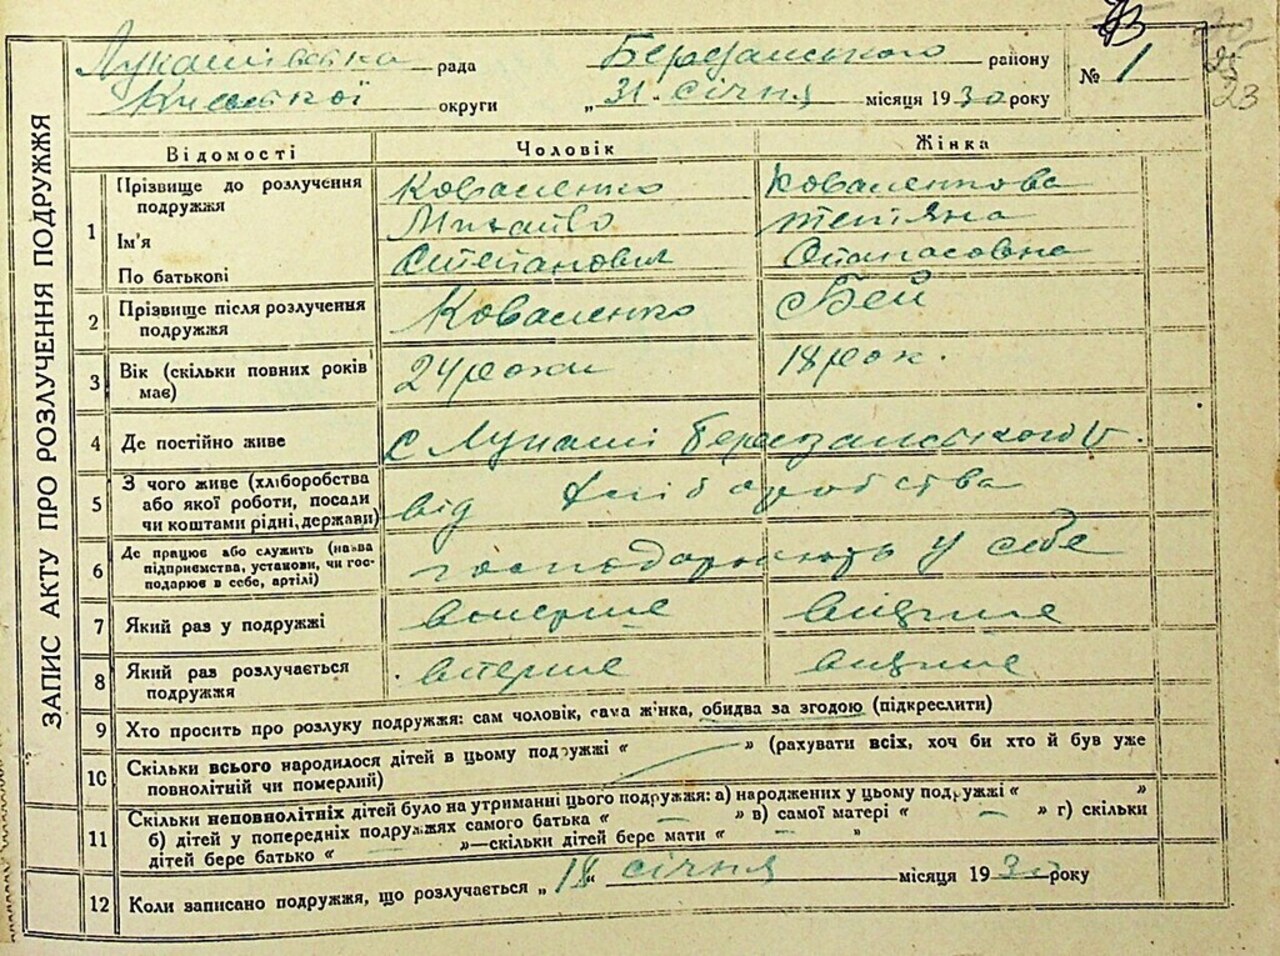 73 25 23
Лукашівська рада Березанського району № 1
Київської округи „31" січня місяця 1930 року
ЗАПИС АКТУ ПРО РОЗЛУЧЕННЯ ПОДРУЖЖЯ
Відомості Чоловік Жінка
1 Прізвище до розлучення подружжя Коваленко Коваленкова
Ім'я Михайло Тетяна
По батькові Степанович Опанасовна
2 Прізвище після розлучення подружжя Коваленко Бей
3 Вік (скільки повних років має) 24 роки 18 рок.
4 Де постійно живе с Лукаші Березанського р.
5 З чого живе (хліборобства
або якої роботи, посади
чи коштами рідні, держави) від хліборобства
6 Де працює або служить (назва
підприємства, установи, чи гос-
подарює в себе, артілі) господарюють у себе
7 Який раз у подружжі вперше вперше
8 Який раз розлучається подружжя вперше вперше
9 Хто просить про розлуку подружжя: сам чоловік, сама жінка, обидва за згодою (підкреслити)
10 Скільки всього народилося дітей в цьому подружжі „ — " (рахувати всіх, хоч би хто й був уже
повнолітній чи померлий)
11 Скільки неповнолітніх дітей було на утриманні цього подружжя: а) народжених у цьому подружжі „ "
б) дітей у попередніх подружжях самого батька „ — " в) самої матері „ — " г) скільки
дітей бере батько „ — "—скільки дітей бере мати „ — "
12 Коли записано подружжя, що розлучається „18" січня місяця 1930 року